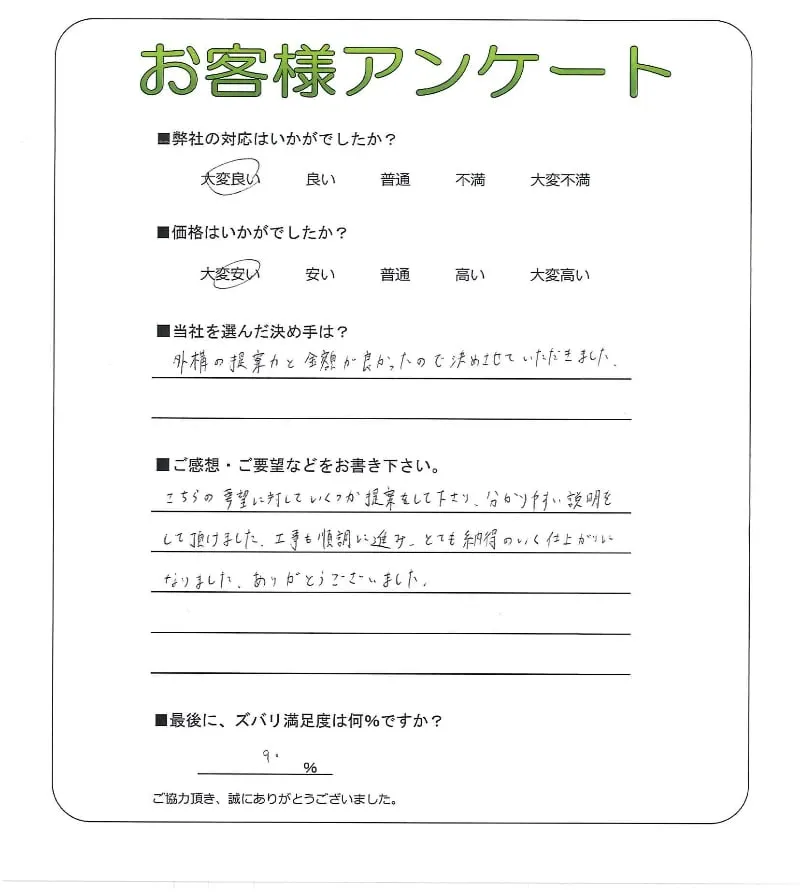 お客様アンケート
■弊社の対応はいかがでしたか？
大変良い 良い 普通 不満 大変不満
■価格はいかがでしたか？
大変安い 安い 普通 高い 大変高い
■当社を選んだ決め手は？
外構の提案力と金額が良かったので決めさせていただきました。
■ご感想・ご要望などをお書き下さい。
こちらの要望に対していくつか提案をして下さり、分かりやすい説明を
して頂けました。工事も順調に進み、とても納得のいく仕上がりに
なりました。ありがとうございました。
■最後に、ズバリ満足度は何%ですか？
90 %
ご協力頂き、誠にありがとうございました。